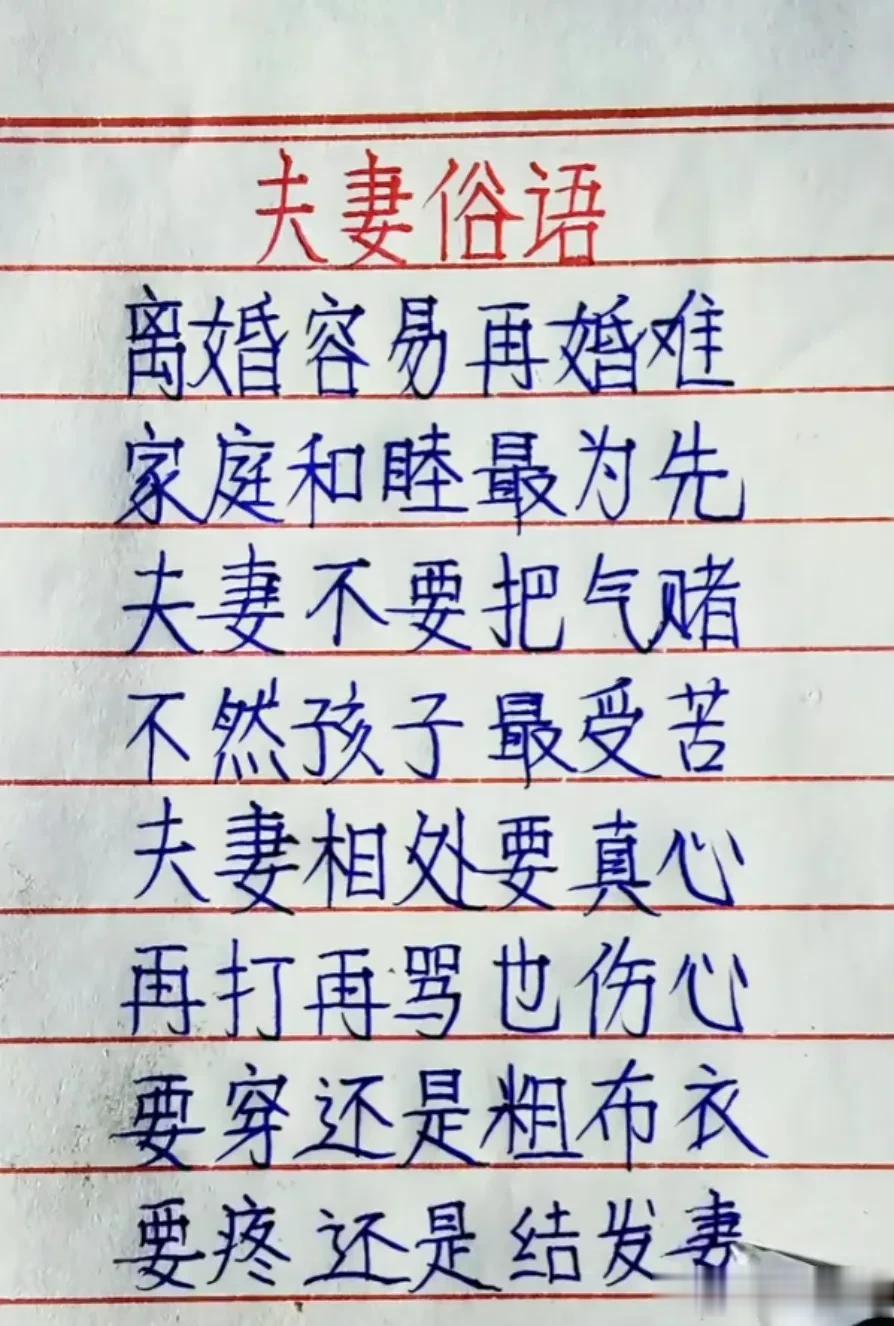 夫妻俗语
离婚容易再婚难
家庭和睦最为先
夫妻不要把气赌
不然孩子最受苦
夫妻相处要真心
再打再骂也伤心
要穿还是粗布衣
要疼还是结发妻